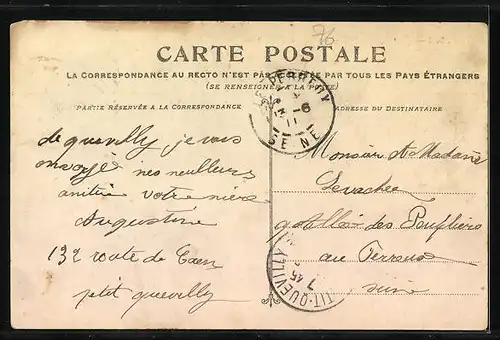 76
CARTE POSTALE
LA CORRESPONDANCE AU RECTO N'EST PAS ACCEPTÉE PAR TOUS LES PAYS ÉTRANGERS
(SE RENSEIGNER A LA POSTE)
PARTIE RÉSERVÉE A LA CORRESPONDANCE
ADRESSE DU DESTINATAIRE
PERREUX
SEINE
de quevilly je vous
envoyé mes meilleurs
amitié votre nièce
Augustine
132 route de Caen
petit quevilly
Monsieur et Madame
Levachee
allée des Peupliers
au Perreux
seine
TIT-QUEVILLY
7 45